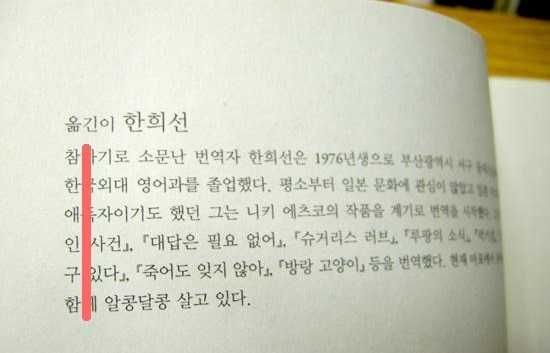 옮긴이 한희선
참하기로 소문난 번역자 한희선은 1976년생으로 부산광역시 서구
한국외대 영어과를 졸업했다. 평소부터 일본 문화에 관심이 많았고
애독자이기도 했던 그는 니키 에츠코의 작품을 계기로 번역을 시작했다.
인 사건』, 『대답은 필요 없어』, 『슈거리스 러브』, 『루팡의 소식』,
구 있다』, 『죽어도 잊지 않아』, 『방랑 고양이』 등을 번역했다. 현재 마포에서
함께 알콩달콩 살고 있다.